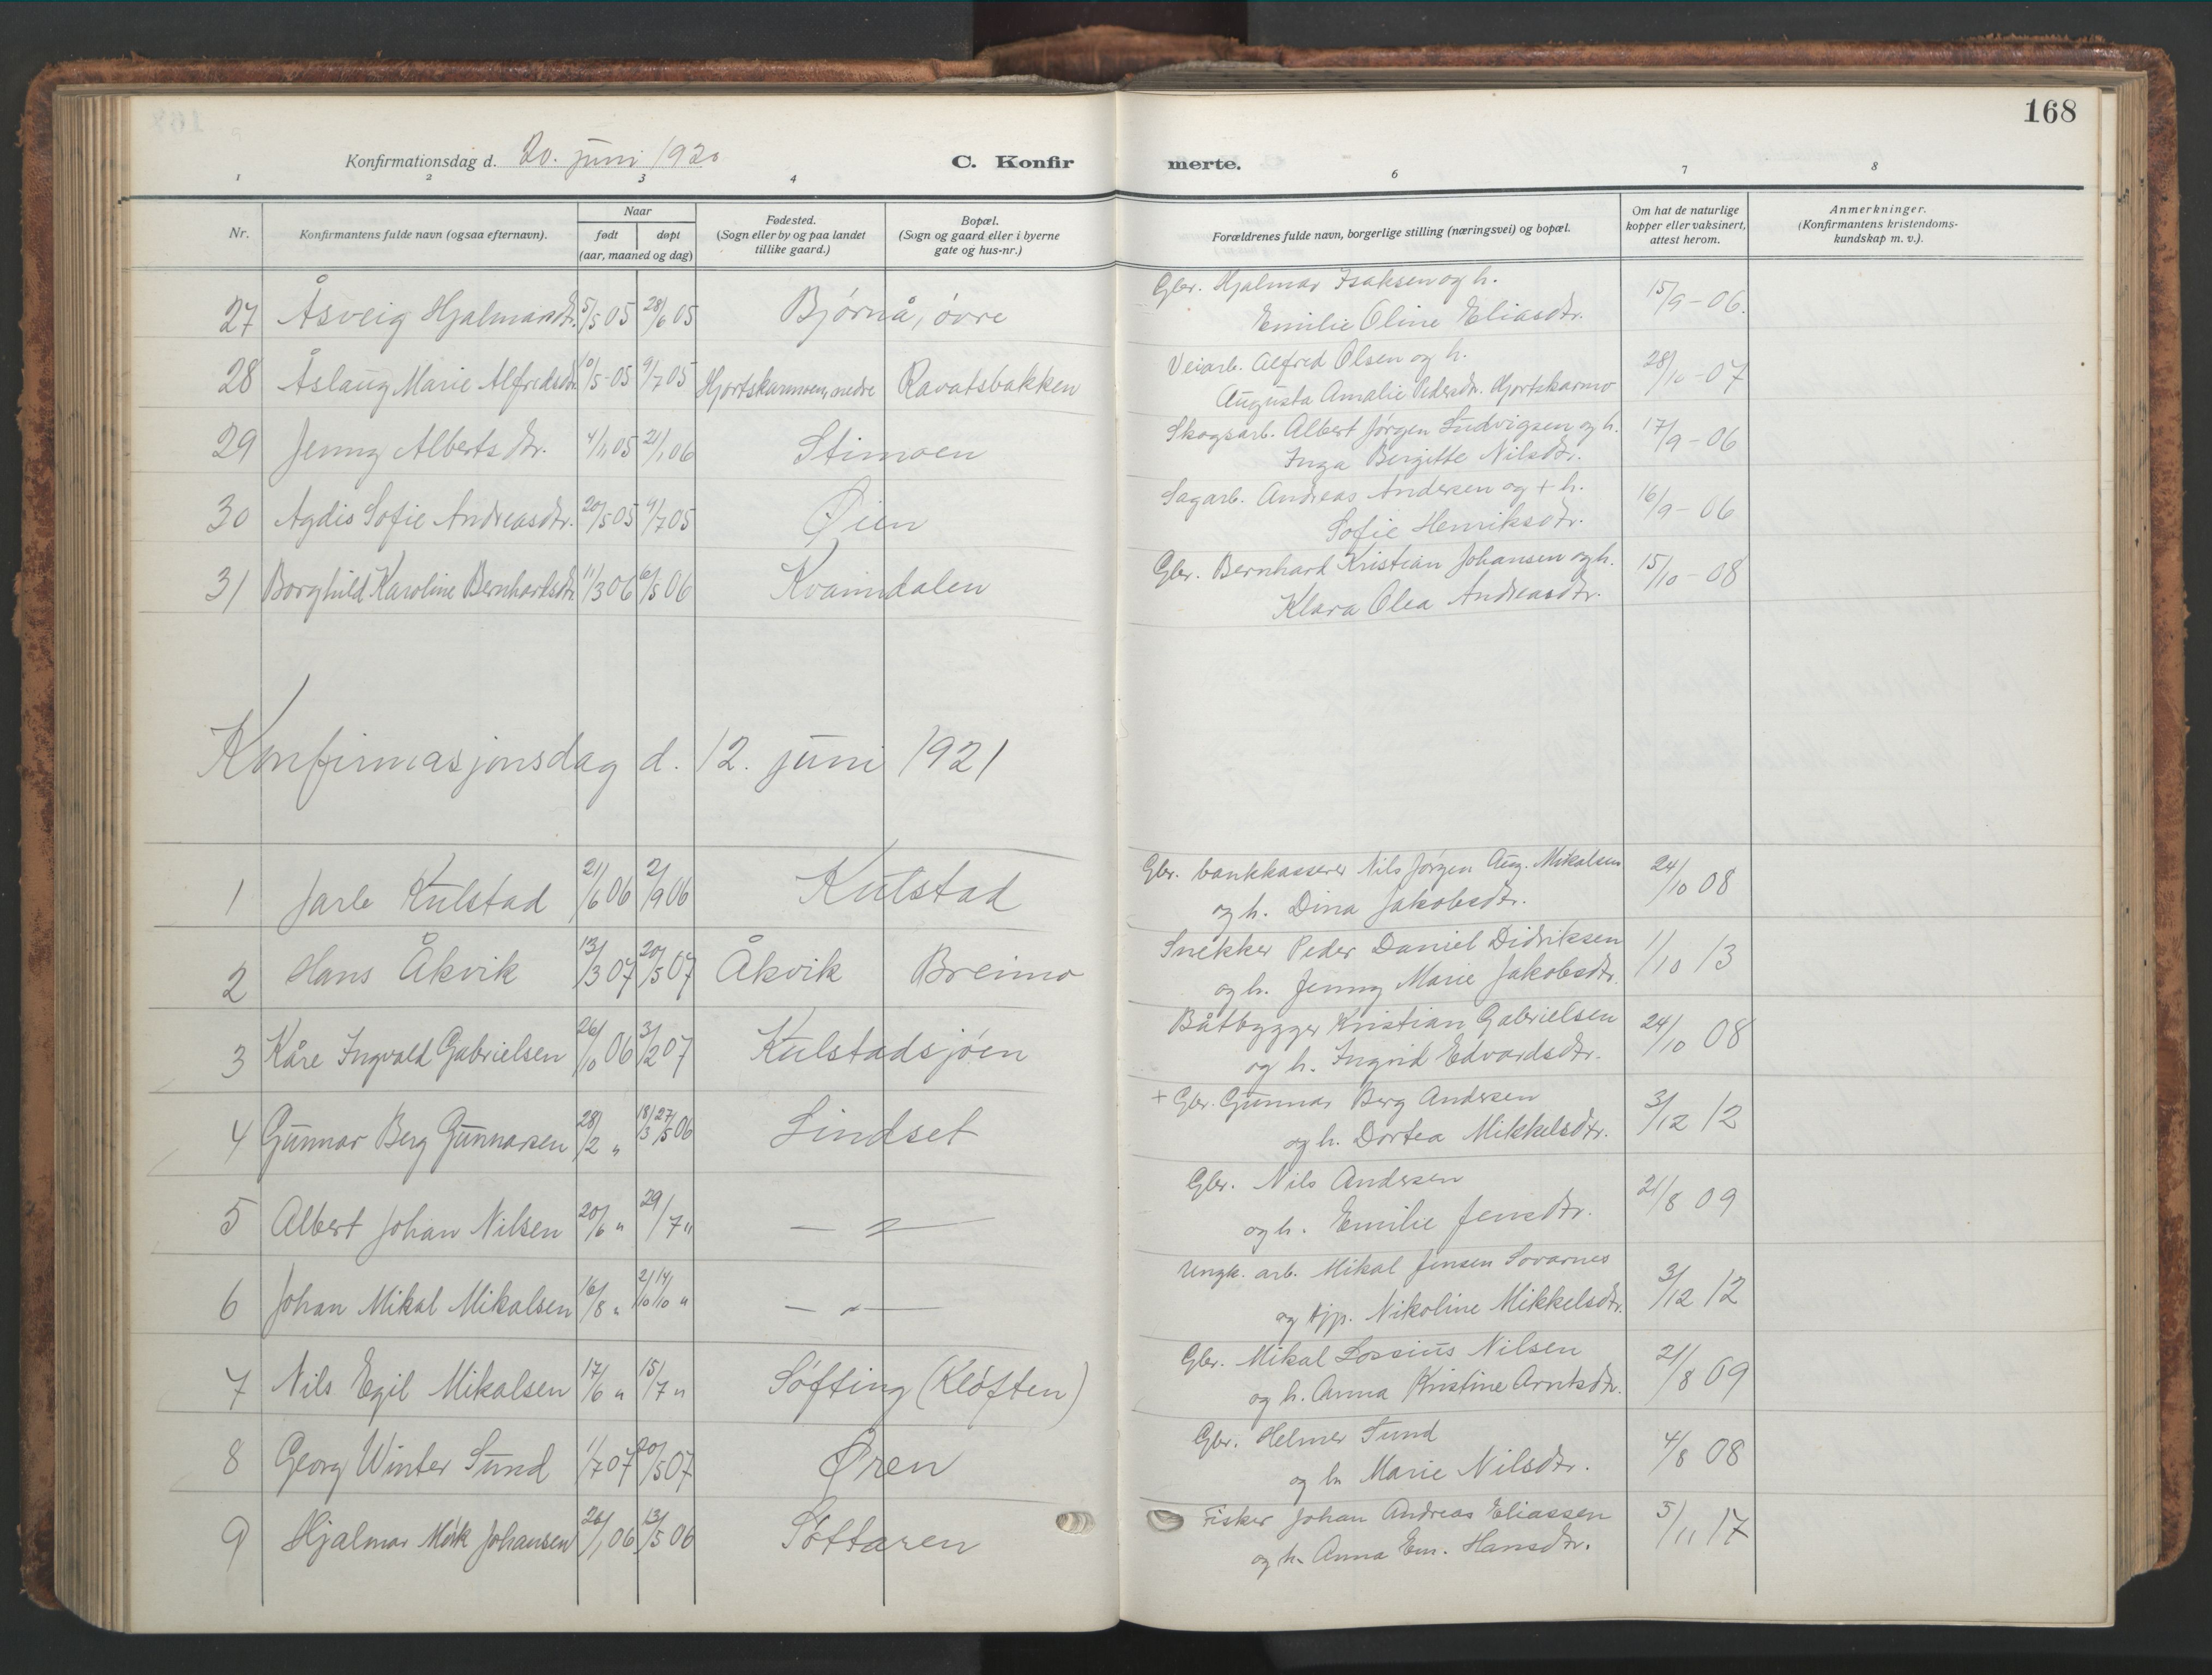 168
Konfirmationsdag d. 20. juni 1920 C. Konfirmerte.
1 2 3 4 6 7 8
Nr. Konfirmantens fulde navn (ogsaa efternavn). Naar født døpt (aar, maaned og dag) Fødested. (Sogn eller by og paa landet tillike gaard.) Bopæl. (Sogn og gaard eller i byerne gate og hus-nr.) Forældrenes fulde navn, borgerlige stilling (næringsvei) og bopæl. Om hat de naturlige kopper eller vaksinert, attest herom. Anmerkninger. (Konfirmantens kristendomskundskap m. v.).
27 Åsveig Hjalmarsdtr. 5/5 05 28/6 05 Bjørnå, øvre Gbr. Hjalmar Isaksen og h. 15/9-06.
Emilie Oline Eliasdtr.
28 Åslaug Marie Alfredsdtr. 10/5-05 9/7 05 Hjortskarmoen, nedre Ravatsbakken Veiarb. Alfred Olsen og h. 28/10-07
Augusta Amalie Pedersdtr. Hjortskarmo
29 Jenny Albertsdtr. 4/11 05 21/1 06 Stimoen Skogsarb. Albert Jörgen Ludvigsen og h. 17/9-06
Inga Bergitte Nilsdtr.
30 Agdis Sofie Andreasdtr. 20/5 05 4/7 05 Øien Sagarb. Andreas Andersen og + h. 16/9-06
Sofie Henriksdtr.
31 Borghild Karoline Bernhardsdtr. 11/3 06 6/5 06 Kvanndalen Gbr. Bernhard Kristian Johansen og h. 15/10-08
Klara Olea Andreasdtr.
Konfirmasjonsdag d. 12. juni 1921
1 Jarle Kulstad 21/6 06 2/9 06 Kulstad Gbr. bankkasserer Nils Jörgen Aug. Mikalsen 24/10 08
og h. Dina Jakobsdtr.
2 Hans Åkvik 13/3 07 20/5 07 Åkvik Breimo Snekker Peder Daniel Didriksen 1/10 13
og h. Jenny Marie Jakobsdtr.
3 Kåre Ingvald Gabrielsen 26/10 06 3/2 07 Kulstadsjøen Båtbygger Kristian Gabrielsen 24/10 08
og h. Ingrid Edvardsdtr.
4 Gunnar Berg Gunnarsen 28/2 " 18/3 27/5 06 Lindset + Gbr. Gunnar Berg Andersen 3/12 12
og h. Dortea Mikkelsdtr.
5 Albert Johan Nilsen 20/6 " 29/7 " — " — Gbr. Nils Andersen 21/8 09
og h. Emilie Jensdtr.
6 Johan Mikal Mikalsen 16/8 " 2/10 14/10 " — " — Ungk. arb. Mikal Jensen Sovarnes 3/12 12
og tjp. Nikoline Mikkelsdtr.
7 Nils Egil Mikalsen 17/6 " 15/7 " Søfting (Kløften) Gbr. Mikal Lossius Nilsen 21/8 09
og h. Anna Kristine Arntsdtr.
8 Georg Winter Sund 1/7 07 20/5 07 Øren Gbr. Helmer Sund 4/8 08
og h. Marie Nilsdtr.
9 Hjalmar Mörk Johansen 26/1 06 13/5 06 Søftaren Fisker Johan Andreas Eliassen 5/11 17
og h. Anna Em. Hansdtr.